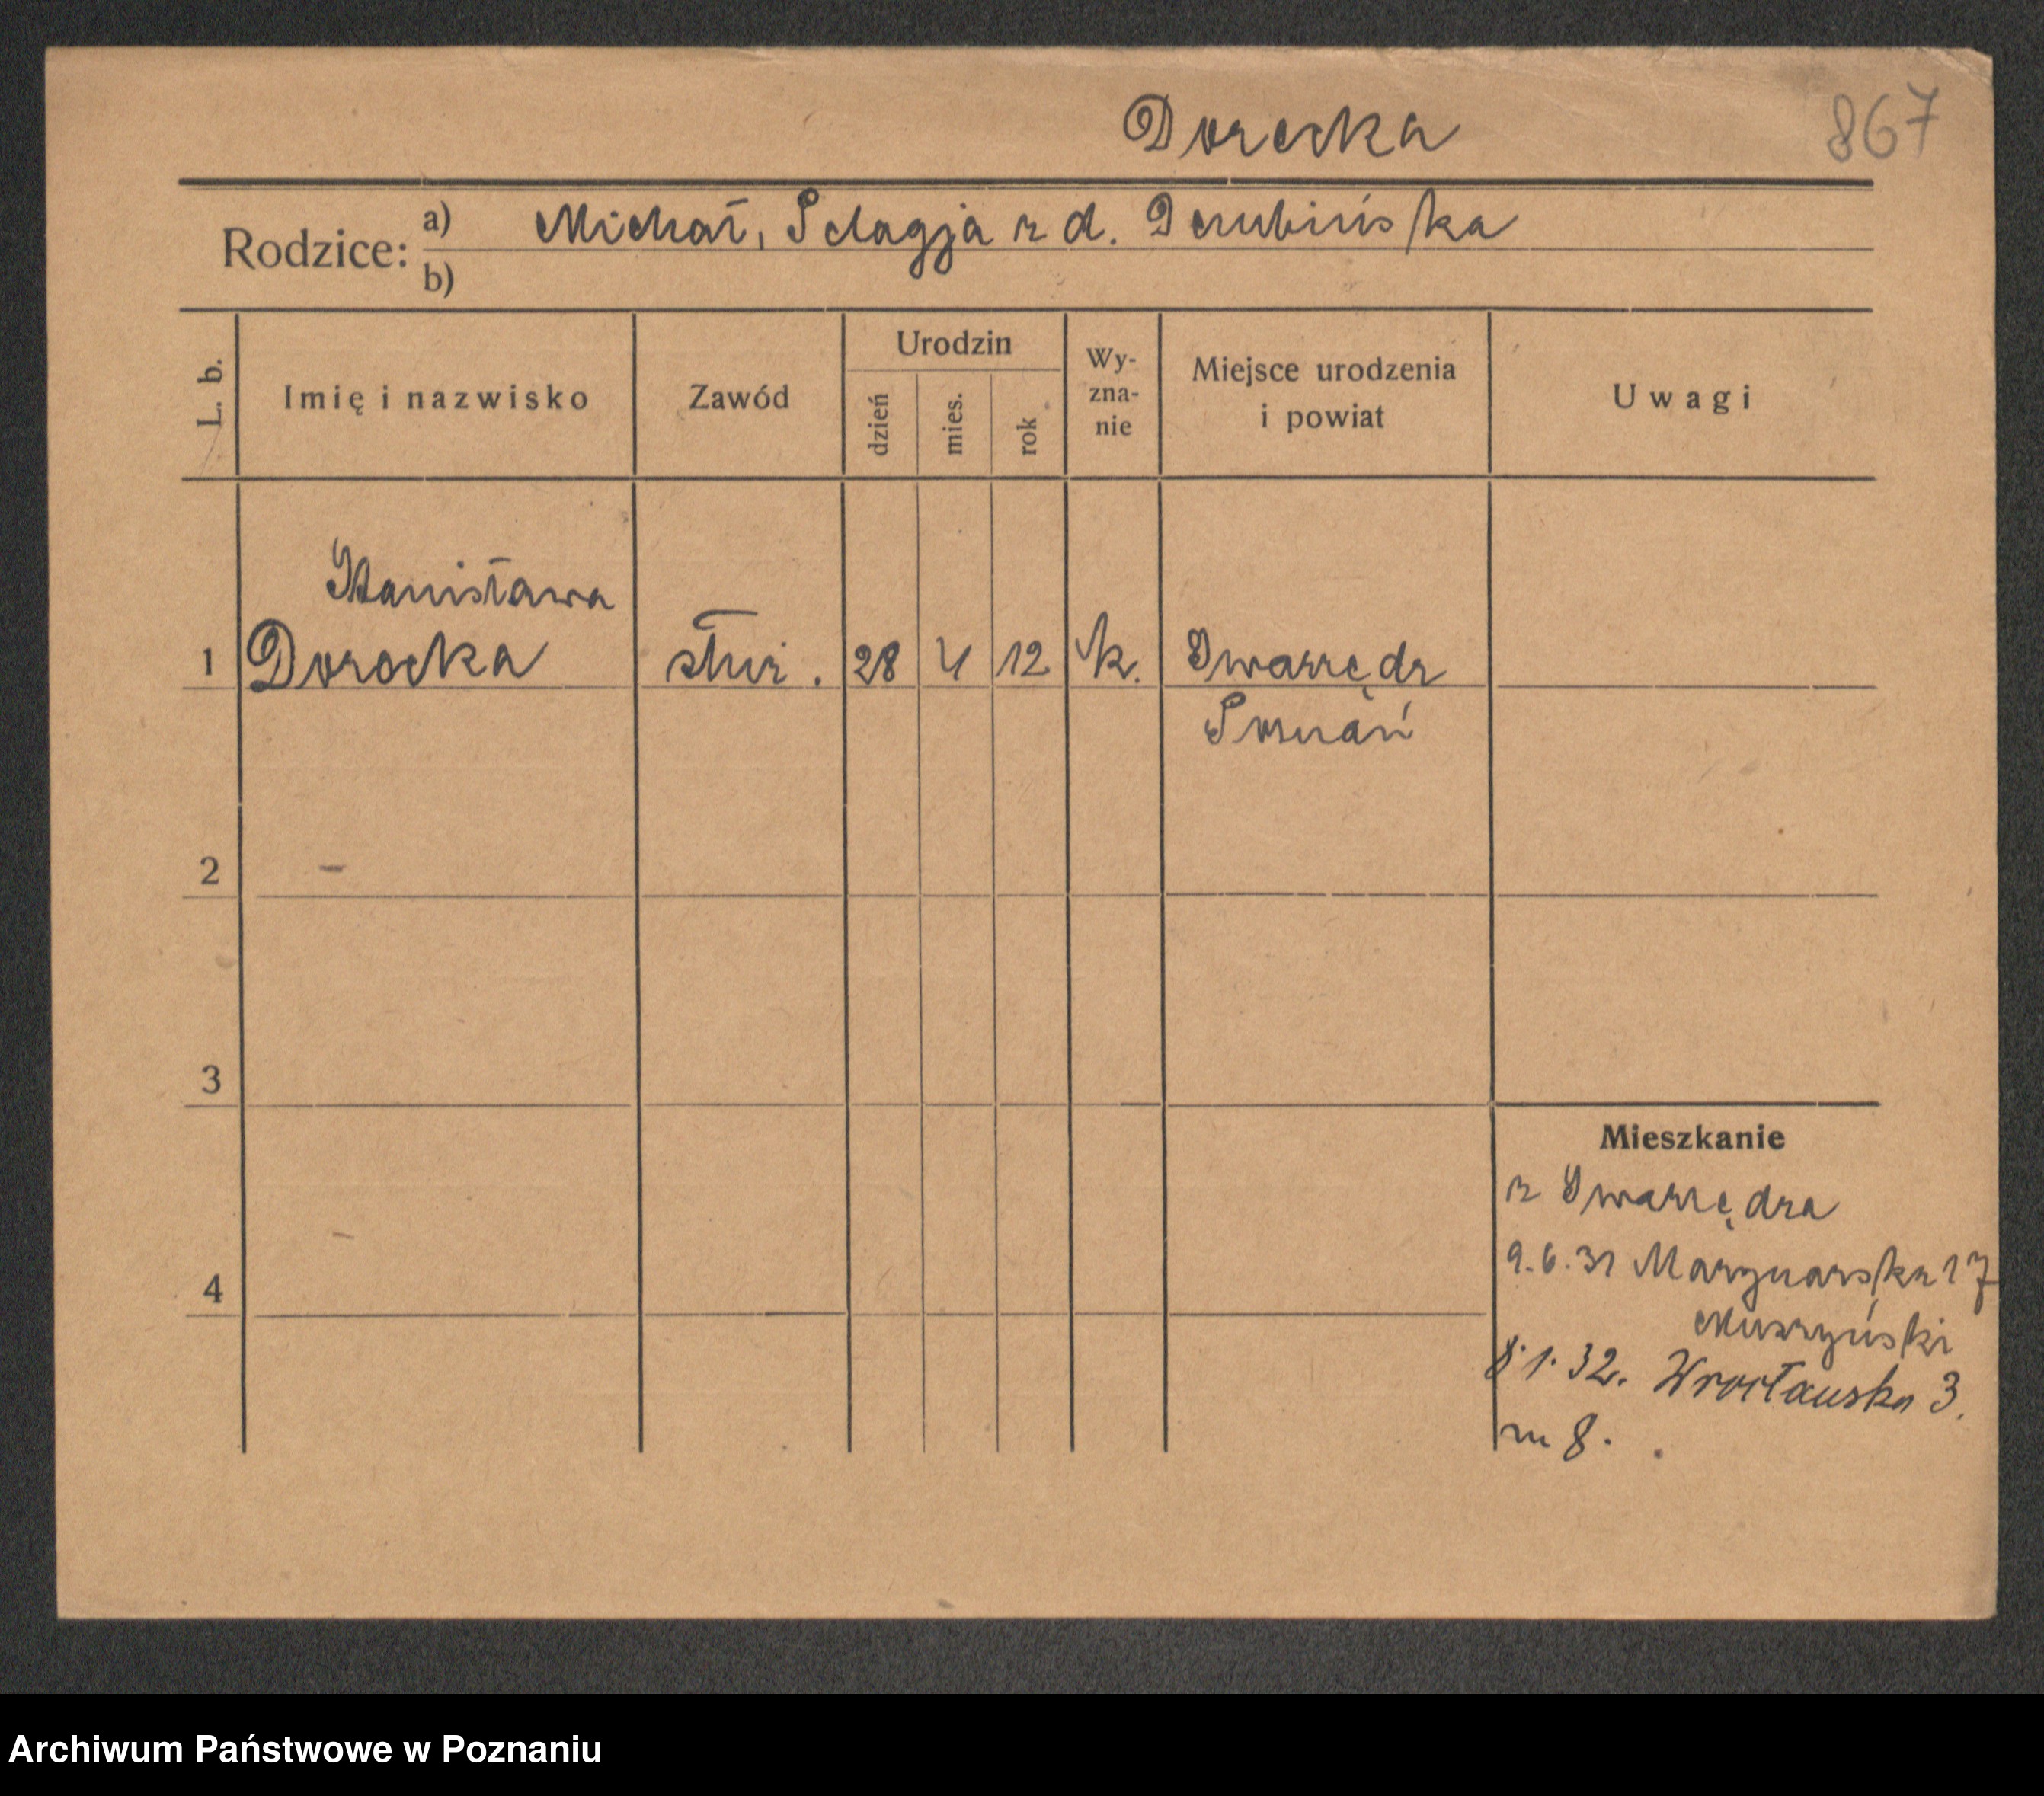 Dorocka
867
Rodzice: a) Michał, Pelagja z d. Derubińska
b)
L. b.
Imię i nazwisko
Zawód
Urodzin
dzień
mies.
rok
Wy-
zna-
nie
Miejsce urodzenia
i powiat
Uwagi
Stanisława
1 Dorocka służ. 28 4 12 k. Swarzędz
Poznań
2
3
4
Mieszkanie
z Swarzędza
9.6.31 Marynarska 17
Muszyński
8.1.32. Wrocławska 3.
m 8.
Archiwum Państwowe w Poznaniu